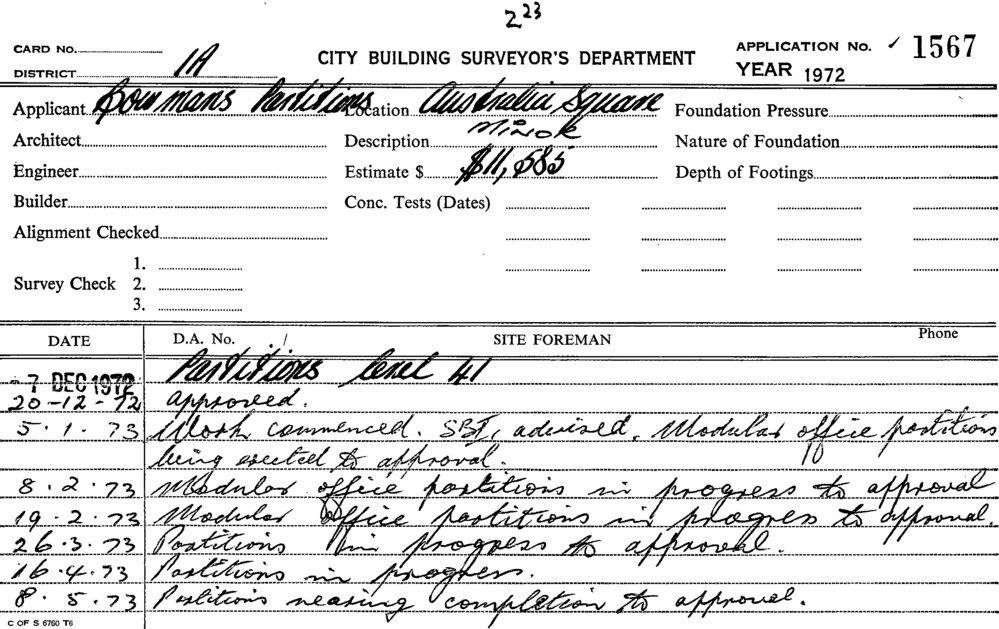 2 23
CARD No.
DISTRICT 1A
CITY BUILDING SURVEYOR'S DEPARTMENT
APPLICATION No. 1567
YEAR 1972
Applicant Bowmans Partitions Location Australia Square Foundation Pressure
Architect Description Minor Nature of Foundation
Engineer Estimate $ $11,585 Depth of Footings
Builder Conc. Tests (Dates)
Alignment Checked
1.
Survey Check 2.
3.
DATE D.A. No. / SITE FOREMAN Phone
-7 DEC 1972 Partitions level 41
20-12-72 approved.
5.1.73 Work commenced. advised. Modular office partitions
being erected to approval.
8.2.73 Modular office partitions in progress to approval
19.2.73 Modular office partitions in progress to approval.
26.3.73 Partitions in progress to approval.
16.4.73 Partitions in progress.
8.5.73 Partitions nearing completion to approval.
C OF S 6760 T6